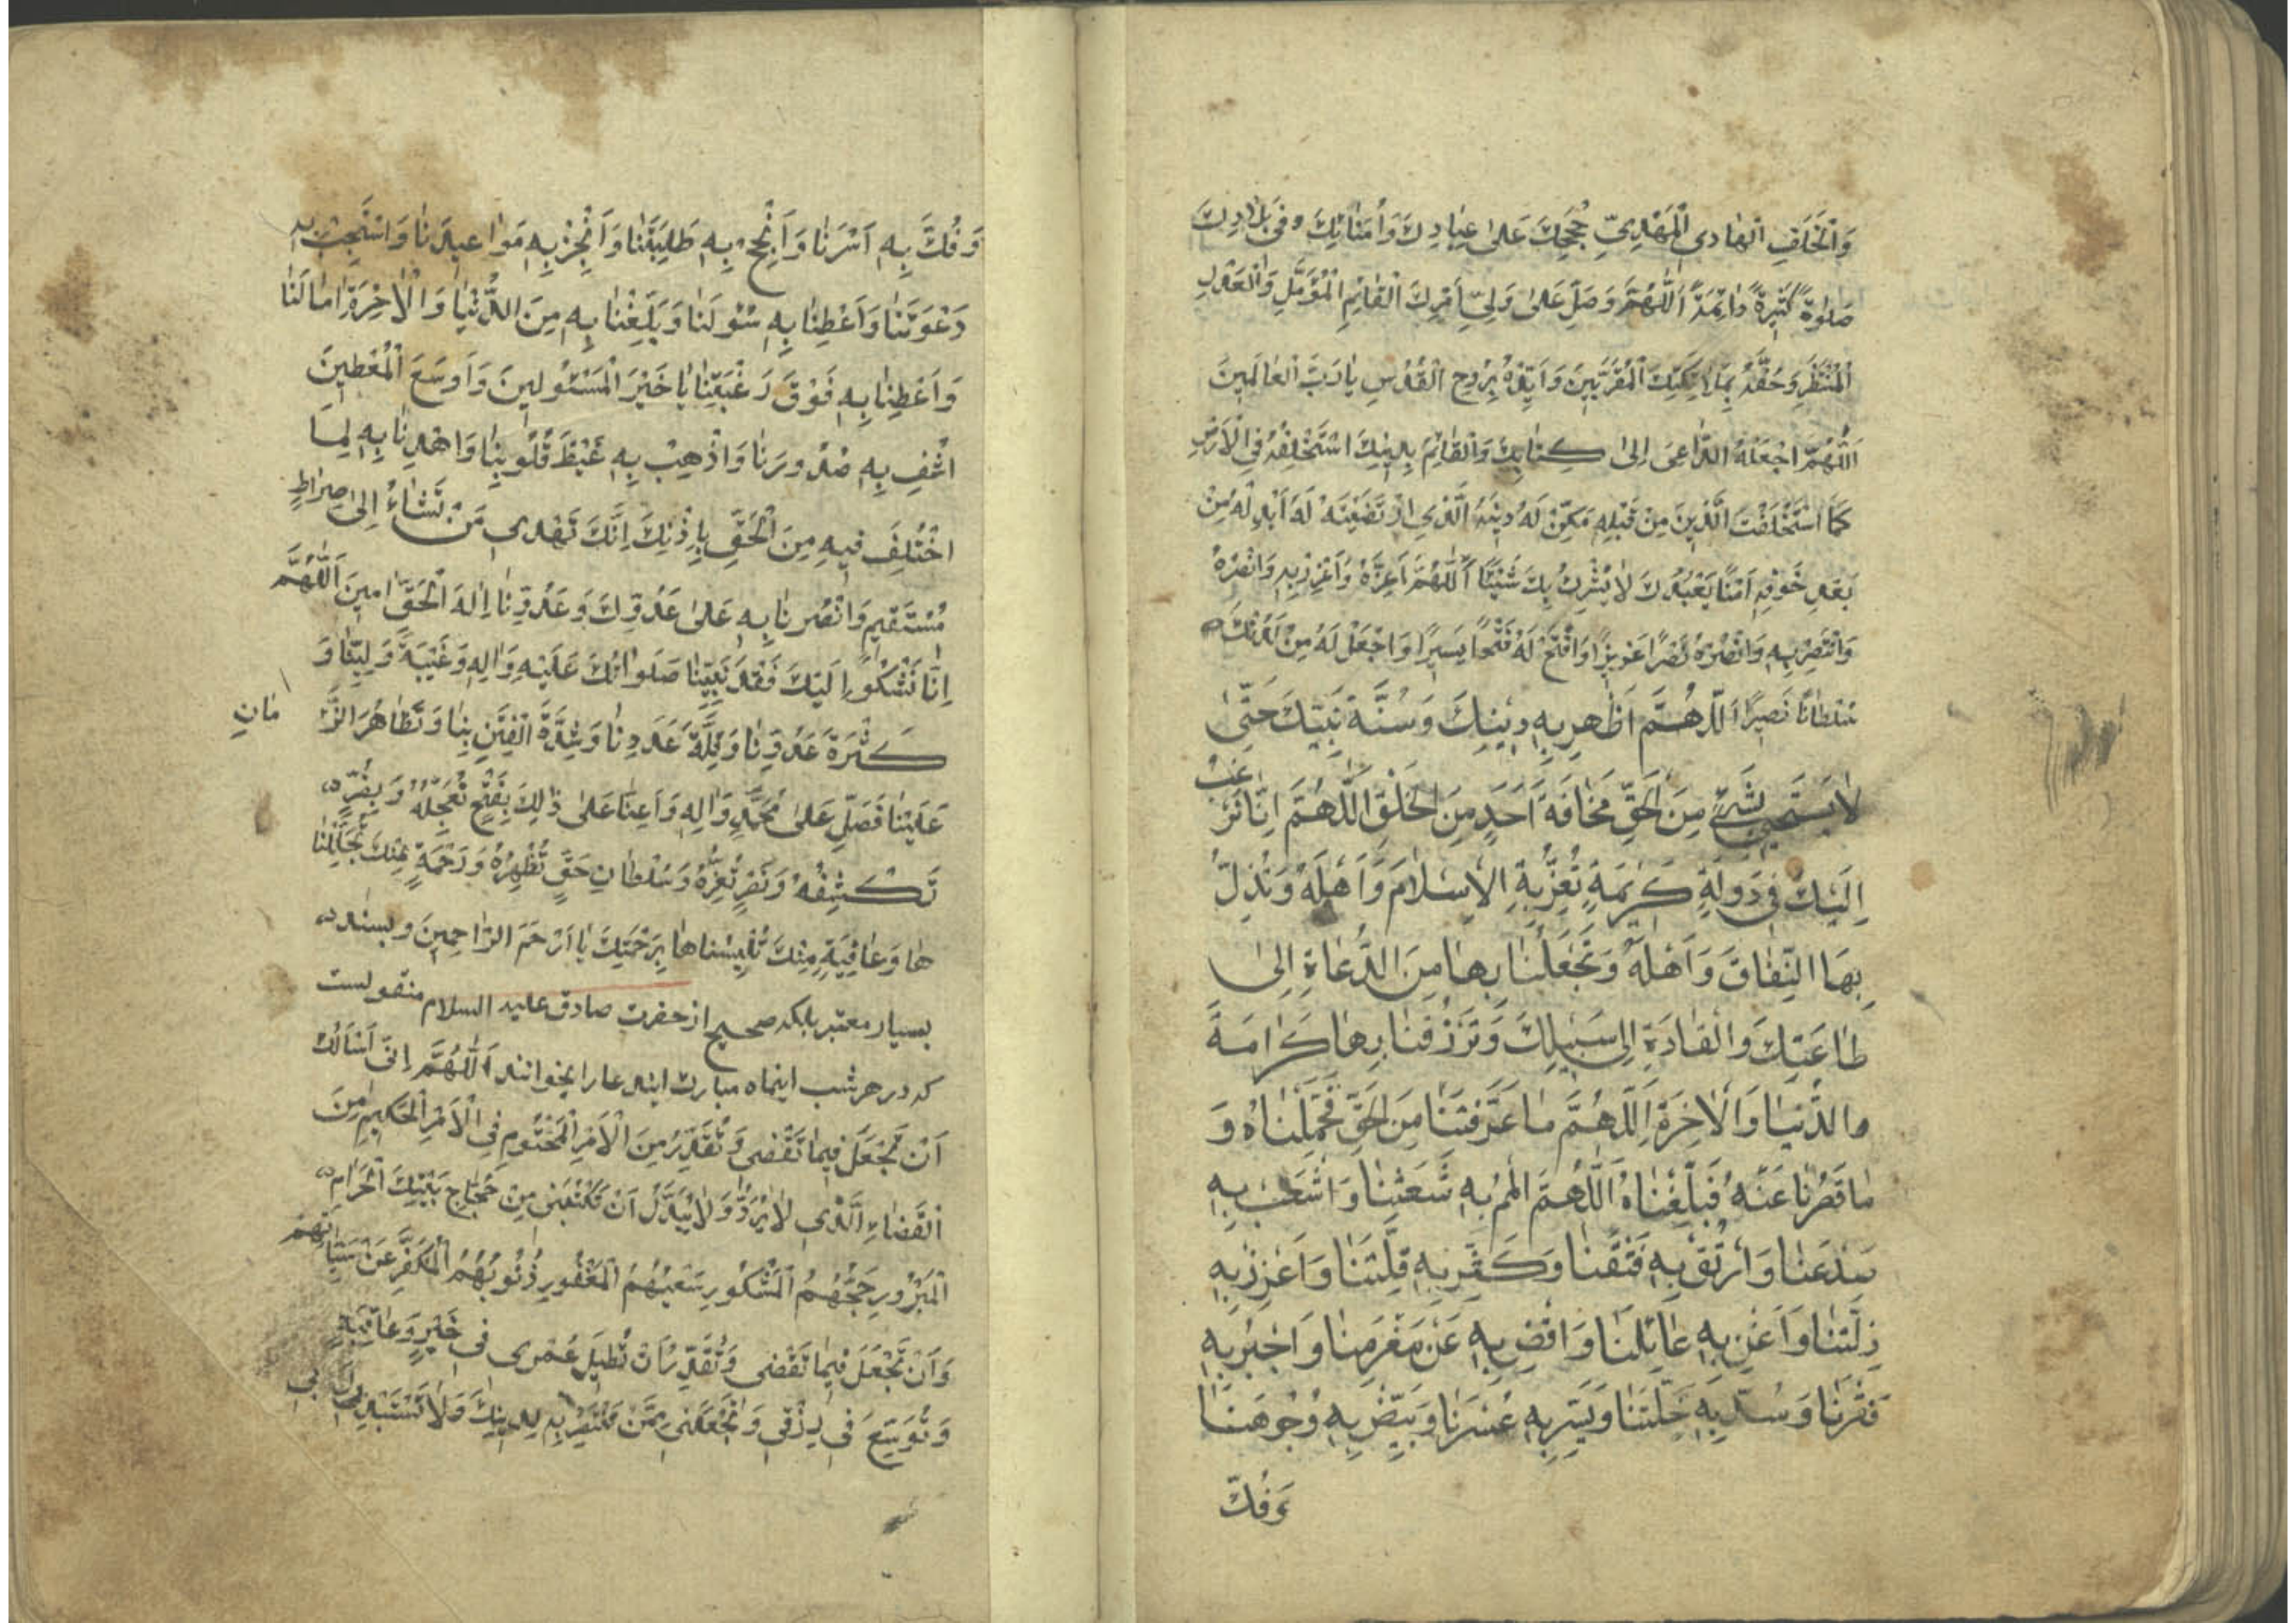 وَالْخَلَفِ الْهَادِي الْمَهْدِيِّ حُجَجِكَ عَلَىٰ عِبَادِكَ وَأُمَنَائِكَ وَفِي بِلَادِكَ
صَلٰوةً كَثِيرَةً دَائِمَةً اَللّٰهُمَّ وَصَلِّ عَلَىٰ وَلِيِّ أَمْرِكَ الْقَائِمِ الْمُؤَمَّلِ وَالْعَدْلِ
الْمُنْتَظَرِ وَحُفَّهُ بِمَلَائِكَتِكَ الْمُقَرَّبِينَ وَأَيِّدْهُ بِرُوحِ الْقُدُسِ يَا رَبَّ الْعَالَمِينَ
اَللّٰهُمَّ اجْعَلْهُ الدَّاعِيَ اِلىٰ كِتَابِكَ وَالْقَائِمَ بِدِينِكَ اسْتَخْلِفْهُ فِي الْأَرْضِ
كَمَا اسْتَخْلَفْتَ الَّذِينَ مِنْ قَبْلِهِ مَكِّنْ لَهُ دِينَهُ الَّذِي ارْتَضَيْتَهُ لَهُ أَبْدِلْهُ مِنْ
بَعْدِ خَوْفِهِ أَمْنًا يَعْبُدُكَ لَا يُشْرِكُ بِكَ شَيْئًا اَللّٰهُمَّ أَعِزَّهُ وَأَعْزِزْ بِهِ وَانْصُرْهُ
وَانْتَصِرْ بِهِ وَانْصُرْهُ نَصْرًا عَزِيزًا وَافْتَحْ لَهُ فَتْحًا يَسِيرًا وَاجْعَلْ لَهُ مِنْ لَدُنْكَ
سُلْطَانًا نَصِيرًا اَللّٰهُمَّ أَظْهِرْ بِهِ دِينَكَ وَسُنَّةَ نَبِيِّكَ حَتّىٰ
لَا يَسْتَخْفِيَ بِشَيْءٍ مِنَ الْحَقِّ مَخَافَةَ أَحَدٍ مِنَ الْخَلْقِ اَللّٰهُمَّ اِنَّا نَرْغَبُ
اِلَيْكَ فِي دَوْلَةٍ كَرِيمَةٍ تُعِزُّ بِهَا الْاِسْلَامَ وَأَهْلَهُ وَتُذِلُّ
بِهَا النِّفَاقَ وَأَهْلَهُ وَتَجْعَلُنَا بِهَا مِنَ الدُّعَاةِ اِلىٰ
طَاعَتِكَ وَالْقَادَةِ اِلىٰ سَبِيلِكَ وَتَرْزُقُنَا بِهَا كَرَامَةَ
والدُّنْيَا وَالْاٰخِرَةِ اَللّٰهُمَّ مَا عَرَّفْتَنَا مِنَ الْحَقِّ فَحَمِّلْنَاهُ وَ
مَا قَصُرْنَا عَنْهُ فَبَلِّغْنَاهُ اَللّٰهُمَّ الْمُمْ بِهِ شَعَثَنَا وَاشْعَبْ بِهِ
صَدْعَنَا وَارْتُقْ بِهِ فَتْقَنَا وَكَثِّرْ بِهِ قِلَّتَنَا وَأَعْزِزْ بِهِ
ذِلَّتَنَا وَأَغْنِ بِهِ عَائِلَنَا وَاقْضِ بِهِ عَنْ مَغْرَمِنَا وَاجْبُرْ بِهِ
فَقْرَنَا وَسُدَّ بِهِ خَلَّتَنَا وَيَسِّرْ بِهِ عُسْرَنَا وَبَيِّضْ بِهِ وُجُوهَنَا
وَفُكَّ
وَفُكَّ بِهِ أَسْرَنَا وَأَنْجِحْ بِهِ طَلِبَتَنَا وَأَنْجِزْ بِهِ مَوَاعِيدَنَا وَاسْتَجِبْ بِهِ
دَعْوَتَنَا وَأَعْطِنَا بِهِ سُؤْلَنَا وَبَلِّغْنَا بِهِ مِنَ الدُّنْيَا وَالْاٰخِرَةِ اٰمَالَنَا
وَأَعْطِنَا بِهِ فَوْقَ رَغْبَتِنَا يَا خَيْرَ الْمَسْئُولِينَ وَأَوْسَعَ الْمُعْطِينَ
اشْفِ بِهِ صُدُورَنَا وَاَذْهِبْ بِهِ غَيْظَ قُلُوبِنَا وَاهْدِنَا بِهِ لِمَا
اخْتُلِفَ فِيهِ مِنَ الْحَقِّ بِاِذْنِكَ اِنَّكَ تَهْدِي مَنْ تَشَاءُ اِلىٰ صِرَاطٍ
مُسْتَقِيمٍ وَانْصُرْنَا بِهِ عَلىٰ عَدُوِّكَ وَعَدُوِّنَا اِلٰهَ الْحَقِّ اٰمِينَ اَللّٰهُمَّ
اِنَّا نَشْكُو اِلَيْكَ فَقْدَ نَبِيِّنَا صَلَوَاتُكَ عَلَيْهِ وَاٰلِهِ وَغَيْبَةَ وَلِيِّنَا وَ
كَثْرَةَ عَدُوِّنَا وَقِلَّةَ عَدَدِنَا وَشِدَّةَ الْفِتَنِ بِنَا وَتَظَاهُرَ الزَّمَانِ
عَلَيْنَا فَصَلِّ عَلىٰ مُحَمَّدٍ وَاٰلِهِ وَأَعِنَّا عَلىٰ ذٰلِكَ بِفَتْحٍ تُعَجِّلُهُ وَبِضُرٍّ
تَكْشِفُهُ وَنَصْرٍ تُعِزُّهُ وَسُلْطَانِ حَقٍّ تُظْهِرُهُ وَرَحْمَةٍ مِنْكَ تُجَلِّلُنَا
هَا وَعَافِيَةٍ مِنْكَ تُلْبِسُنَاهَا بِرَحْمَتِكَ يَا أَرْحَمَ الرَّاحِمِينَ وبسند
بسیار معتبر بلکه صحیح از حضرت صادق علیه السلام منقولست
که در هر شب اینماه مبارک ایندعا را بخوانند اَللّٰهُمَّ اِنِّي أَسْأَلُكَ
أَنْ تَجْعَلَ فِيمَا تَقْضِي وَتُقَدِّرُ مِنَ الْأَمْرِ الْمَحْتُومِ فِي الْأَمْرِ الْحَكِيمِ مِنَ
الْقَضَاءِ الَّذِي لَا يُرَدُّ وَلَا يُبَدَّلُ أَنْ تَكْتُبَنِي مِنْ حُجَّاجِ بَيْتِكَ الْحَرَامِ
الْمَبْرُورِ حَجُّهُمُ الْمَشْكُورِ سَعْيُهُمُ الْمَغْفُورِ ذُنُوبُهُمُ الْمُكَفَّرِ عَنْ سَيِّئَاتِهِمْ
وَأَنْ تَجْعَلَ فِيمَا تَقْضِي وَتُقَدِّرُ أَنْ تُطِيلَ عُمْرِي فِي خَيْرٍ وَعَافِيَةٍ
وَتُوَسِّعَ فِي رِزْقِي وَتَجْعَلَنِي مِمَّنْ تَنْتَصِرُ بِهِ لِدِينِكَ وَلَا تَسْتَبْدِلْ بِي